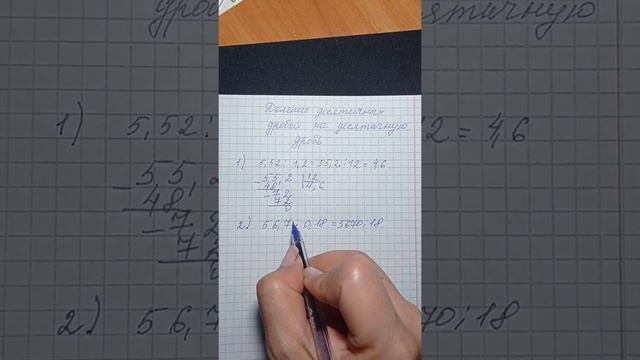 Деление десятичных
дробей на десятичную
дробь
1) 5,52 : 1,2 = 55,2 : 12 = 4,6
55,2 | 12
48 | 4,6
72
72
0
2) 56,7 : 0,18 = 5670 : 18